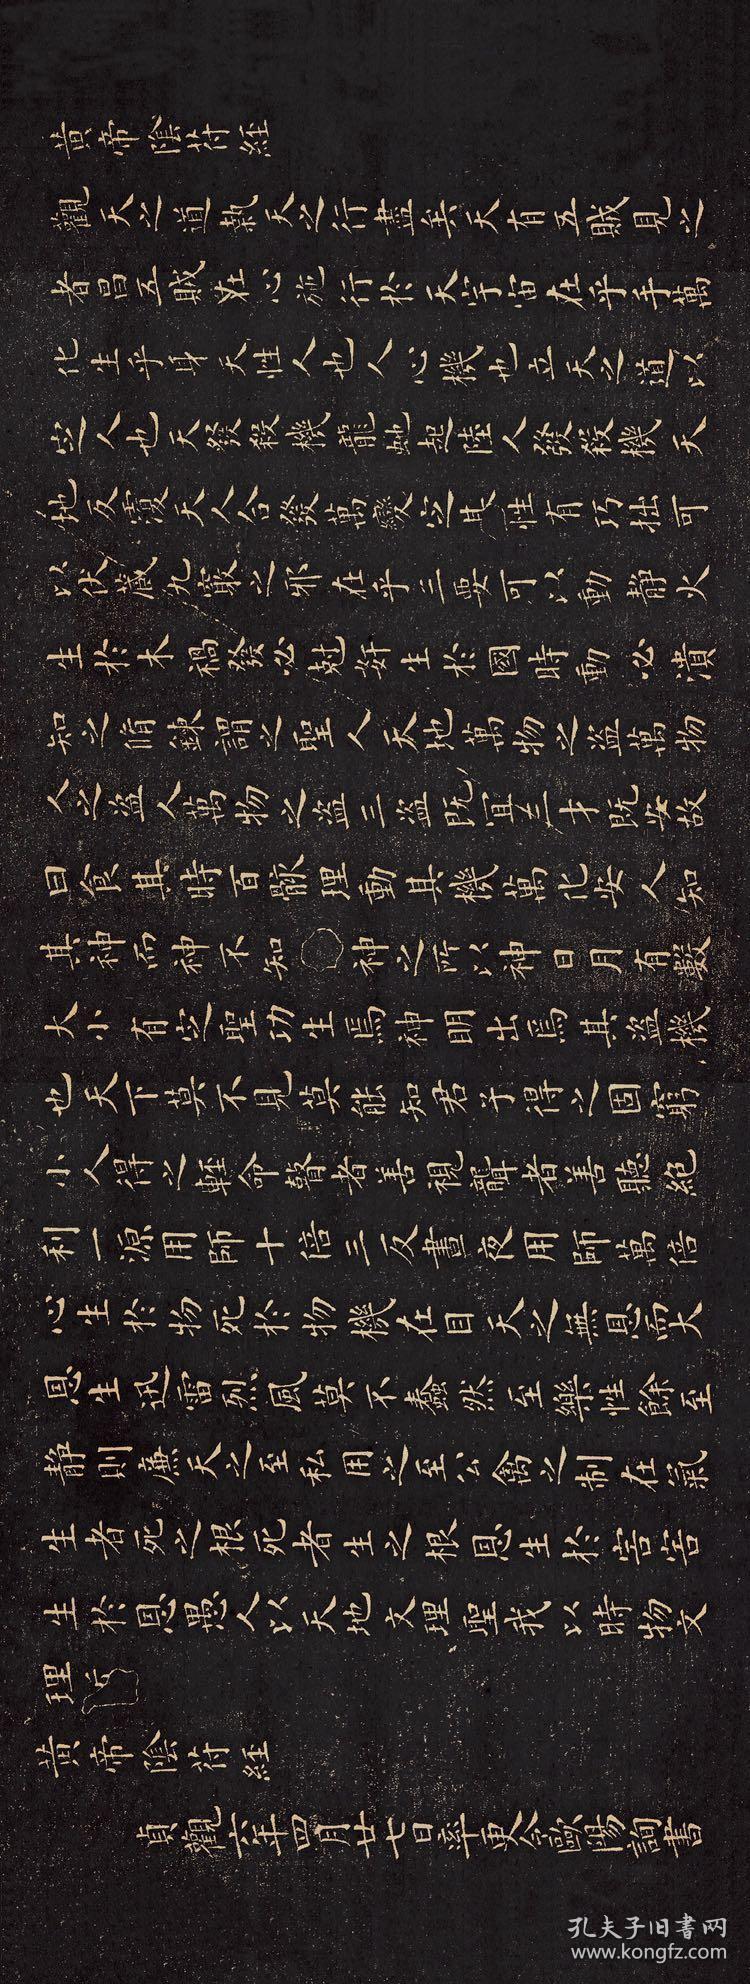 黃帝陰符經
觀天之道執天之行盡矣天有五賊見之
者昌五賊在心施行於天宇宙在乎手萬
化生乎身天性人也人心機也立天之道以
定人也天發殺機龍虵起陸人發殺機天
地反覆天人合發萬變定基性有巧拙可
以伏藏九竅之邪在乎三要可以動靜火
生於木禍發必尅奸生於國時動必潰
知之脩鍊謂之聖人天地萬物之盜萬物
人之盜人萬物之盜三盜既宜三才既安故
曰食其時百骸理動其機萬化安人知
其神而神不知神之所以神日月有數
大小有定聖功生焉神明出焉其盜機
也天下莫不見莫能知君子得之固窮
小人得之輕命瞽者善視聾者善聽絕
利一源用師十倍三反晝夜用師萬倍
心生於物死於物機在目天之無恩而大
恩生迅雷烈風莫不蠢然至樂性餘至
靜則廉天之至私用之至公禽之制在氣
生者死之根死者生之根恩生於害害
生於恩愚人以天地文理聖我以時物文
理
黃帝陰符經
貞觀六年四月廿七日率更令歐陽詢書
孔夫子旧書网
www.kongfz.com